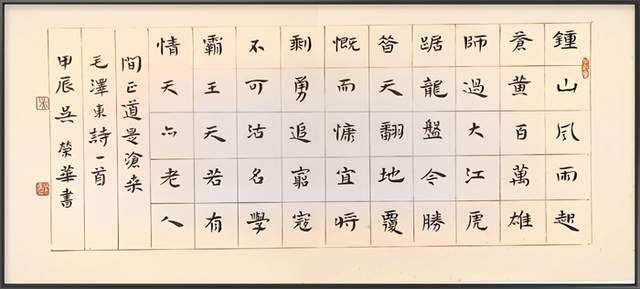 鍾山风雨起
蒼黄百萬雄
師過大江虎
踞龍盤今勝
昔天翻地覆
慨而慷宜将
剩勇追窮寇
不可沽名學
霸王天若有
情天亦老人
間正道是滄桑
毛澤東詩一首
甲辰吴榮華書